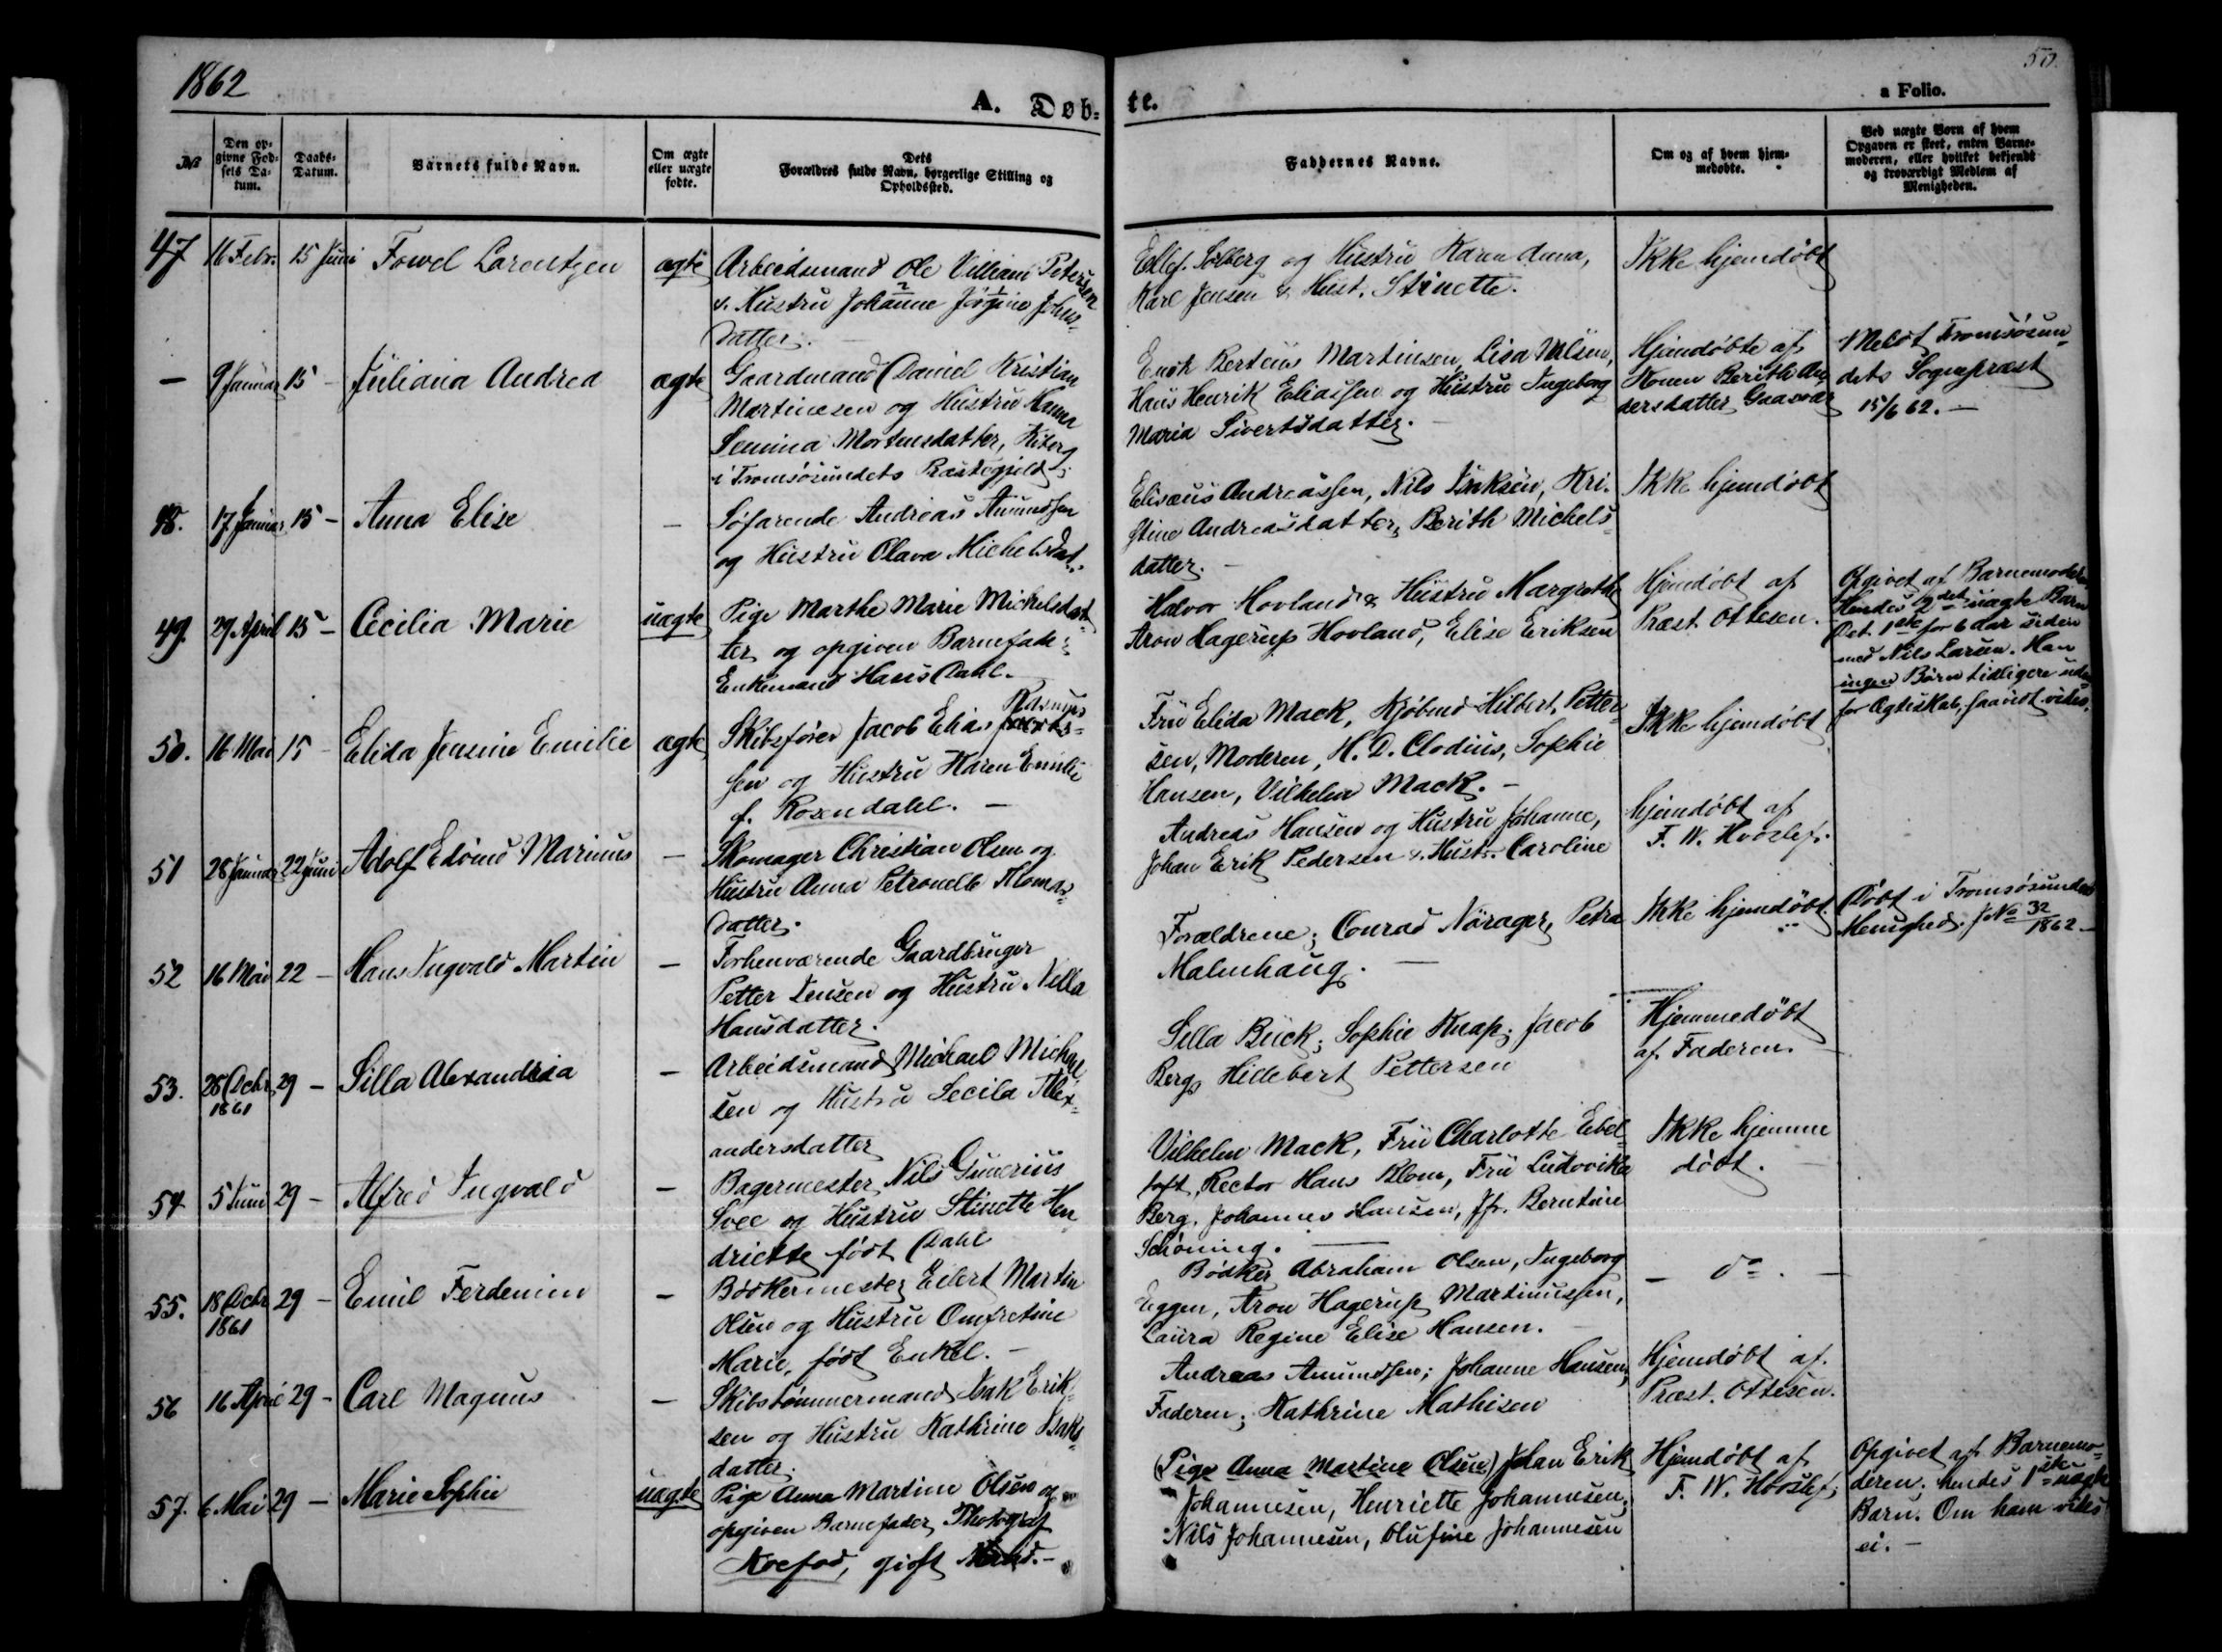 1862
50.
A. Døb-
te.
a Folio.
No
Den op-
givne Fød-
sels Da-
tum.
Daabs-
Datum.
Barnets fulde Navn.
Om ægte
eller uægte
fødte.
Dets
Forældres fulde Navn, borgerlige Stilling og
Opholdssted.
Faddernes Navne.
Om og af hvem hjem-
medøbte.
Ved uægte Børn af hvem
Opgaven er skeet, enten Barne-
moderen, eller hvilket bekjendt
og troværdigt Medlem af
Menigheden.
47 16 Febr. 15 Juni Lorentzen ægte
Arbeidsmand Ole Villiam Petersen
& Hustru Johanne Jørgine Johns-
datter.
Ellef. Solberg og Hustru Karen Anna,
Karl Jensen & Hust. Stinette.
Ikke hjemdøbt
— 9 Januar 15 – Juliana Andrea ægte
Gaardmand Daniel Kristian
Martinesen og Hustru Hanna
Semina Mortensdatter,
i Tromsøsundets Præstegjeld.
Enok Berteus Martinsen, Lisa Nilsen,
Hans Henrik Eliassen og Hustru Ingeborg
Maria Sivertsdatter.
Hjemdøbte af
Konen Berith An-
dersdatter Gaasvær
Meldt Tromsøsun-
dets Sognepræst
15/6 62. —
48. 17 Januar 15 – Anna Elise —
Søfarende Andreas Amundsen
og Hustru Olava Michelsdat.
Elisæus Andreassen, Nils Isaksen, Kri-
stine Andreasdatter, Berith Michels-
datter.
Ikke hjemdøbt
49. 29 April 15 – Cecilia Marie uægte
Pige Marthe Marie Michelsdat-
ter og opgiven Barnefader:
Enkemand Hans Dahl.
Halvor Hovland & Hustru Margrethe
Aron Hagerup Hovland, Elise Eriksen
Hjemdøbt af
Præst. Ottesen.
Opgivet af Barnemoderen
Hendes 2det uægte Barn
Det 1ste for 6 Aar siden
med Nils Larsen. Han
ingen Børn tidligere uden
for Ægteskab, saavidt vides.
50. 16 Mai 15 – Elida Jensine Emilie ægte
Rasmus
Skibsfører Jacob Elias
sen og Hustru Karen Emilie
f. Rosendahl. —
Fru Elida Mack, Kjøbmd Hilbert Petter-
sen, Moderen, H. D. Clodius, Sophie
Hansen, Vilhelm Mack. –
Ikke hjemdøbt
51 28 Januar 22 Juni Adolf Edvind Marinus —
Skomager Christian Olsen og
Hustru Anna Petronelle Thomas-
datter.
Andreas Hansen og Hustru Johanne,
Johan Erik Pedersen & Hustr. Caroline
hjemdøbt af
F. W. Hvoslef.
52 16 Mai 22 – Hans Ingvald Martin —
Forhenværende Gaardbruger
Petter Jensen og Hustru Nella
Hansdatter.
Forældrene; Conrad Nørager, Petra
Malmhaug. —
Ikke hjemdøbt.
Døbt i Tromsøsundets
Menighed. J No 32/1862
53. 28 Decbr 1861 29 – Silla Alexandria —
Arbeidsmand Michael Michael-
sen og Hustru Secila Alex-
andersdatter
Silla Bück; Sophie Knap; Jacob
Berg, Hillebert Pettersen
Hjemmedøbt
af Faderen.
54 5 Juni 29 – Alfred Ingvald —
Bagermester Nils Gunerius
Svee og Hustru Stinette Hen-
driette født Dahl
Vilhelm Mack, Fru Charlotte Ebel-
toft, Rector Hans Blom, Fru Ludovika
Berg, Johannes Hansen, Jfr. Berntine
Schøning. —
Ikke hjemme
døbt.
55. 18 Decbr 1861 29 – Emil Ferdenim —
Bødkermester Eilert Martin
Olsen og Hustru Omfretine
Marie, født Enkel. –
Bødker Abraham Olsen, Ingeborg
Eggen, Aron Hagerup Martinussen,
Laura Regine Elise Hansen.
— do. —
56 16 April 29 – Carl Magnus —
Skibstømmermand Isak Erik-
sen og Hustru Kathrine Isaks-
datter.
Andreas Amundsen; Johanne Hansen;
Faderen; Kathrine Mathisen
Hjemdøbt af.
Præst. Ottesen.
57. 6 Mai 29 — Marie Sophie uægte
Pige Anna Martine Olsen og
opgiven Barnefader, Photograf
Koefod, gift Mand. –
(Pige Anna Martine Olsen) Johan Erik
Johannesen, Henriette Johannesen,
Nils Johannesen, Olufine Johannesen
Hjemdøbt af
F. W. Hvoslef;
Opgivet af Barnemo-
deren; hendes 1ste uægte
Barn. Om ham vides
ei. –